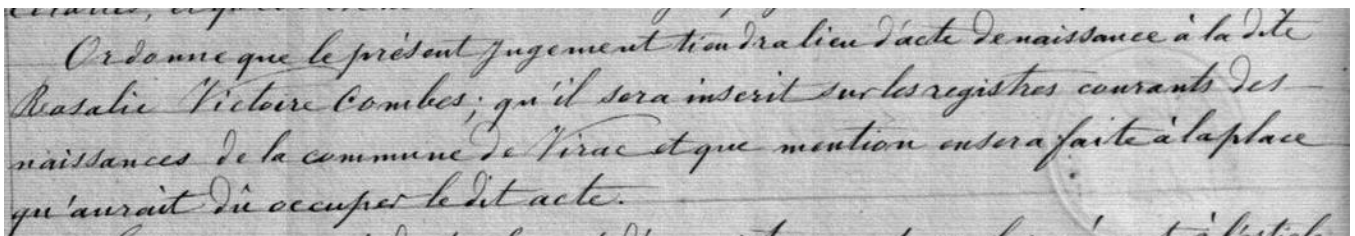 Ordonne que le présent jugement tiendra lieu d'acte de naissance à la dite
Rosalie Victoire Combes; qu'il sera inscrit sur les registres courants des
naissances de la commune de Virac et que mention en sera faite à la place
qu'aurait dû occuper le dit acte.